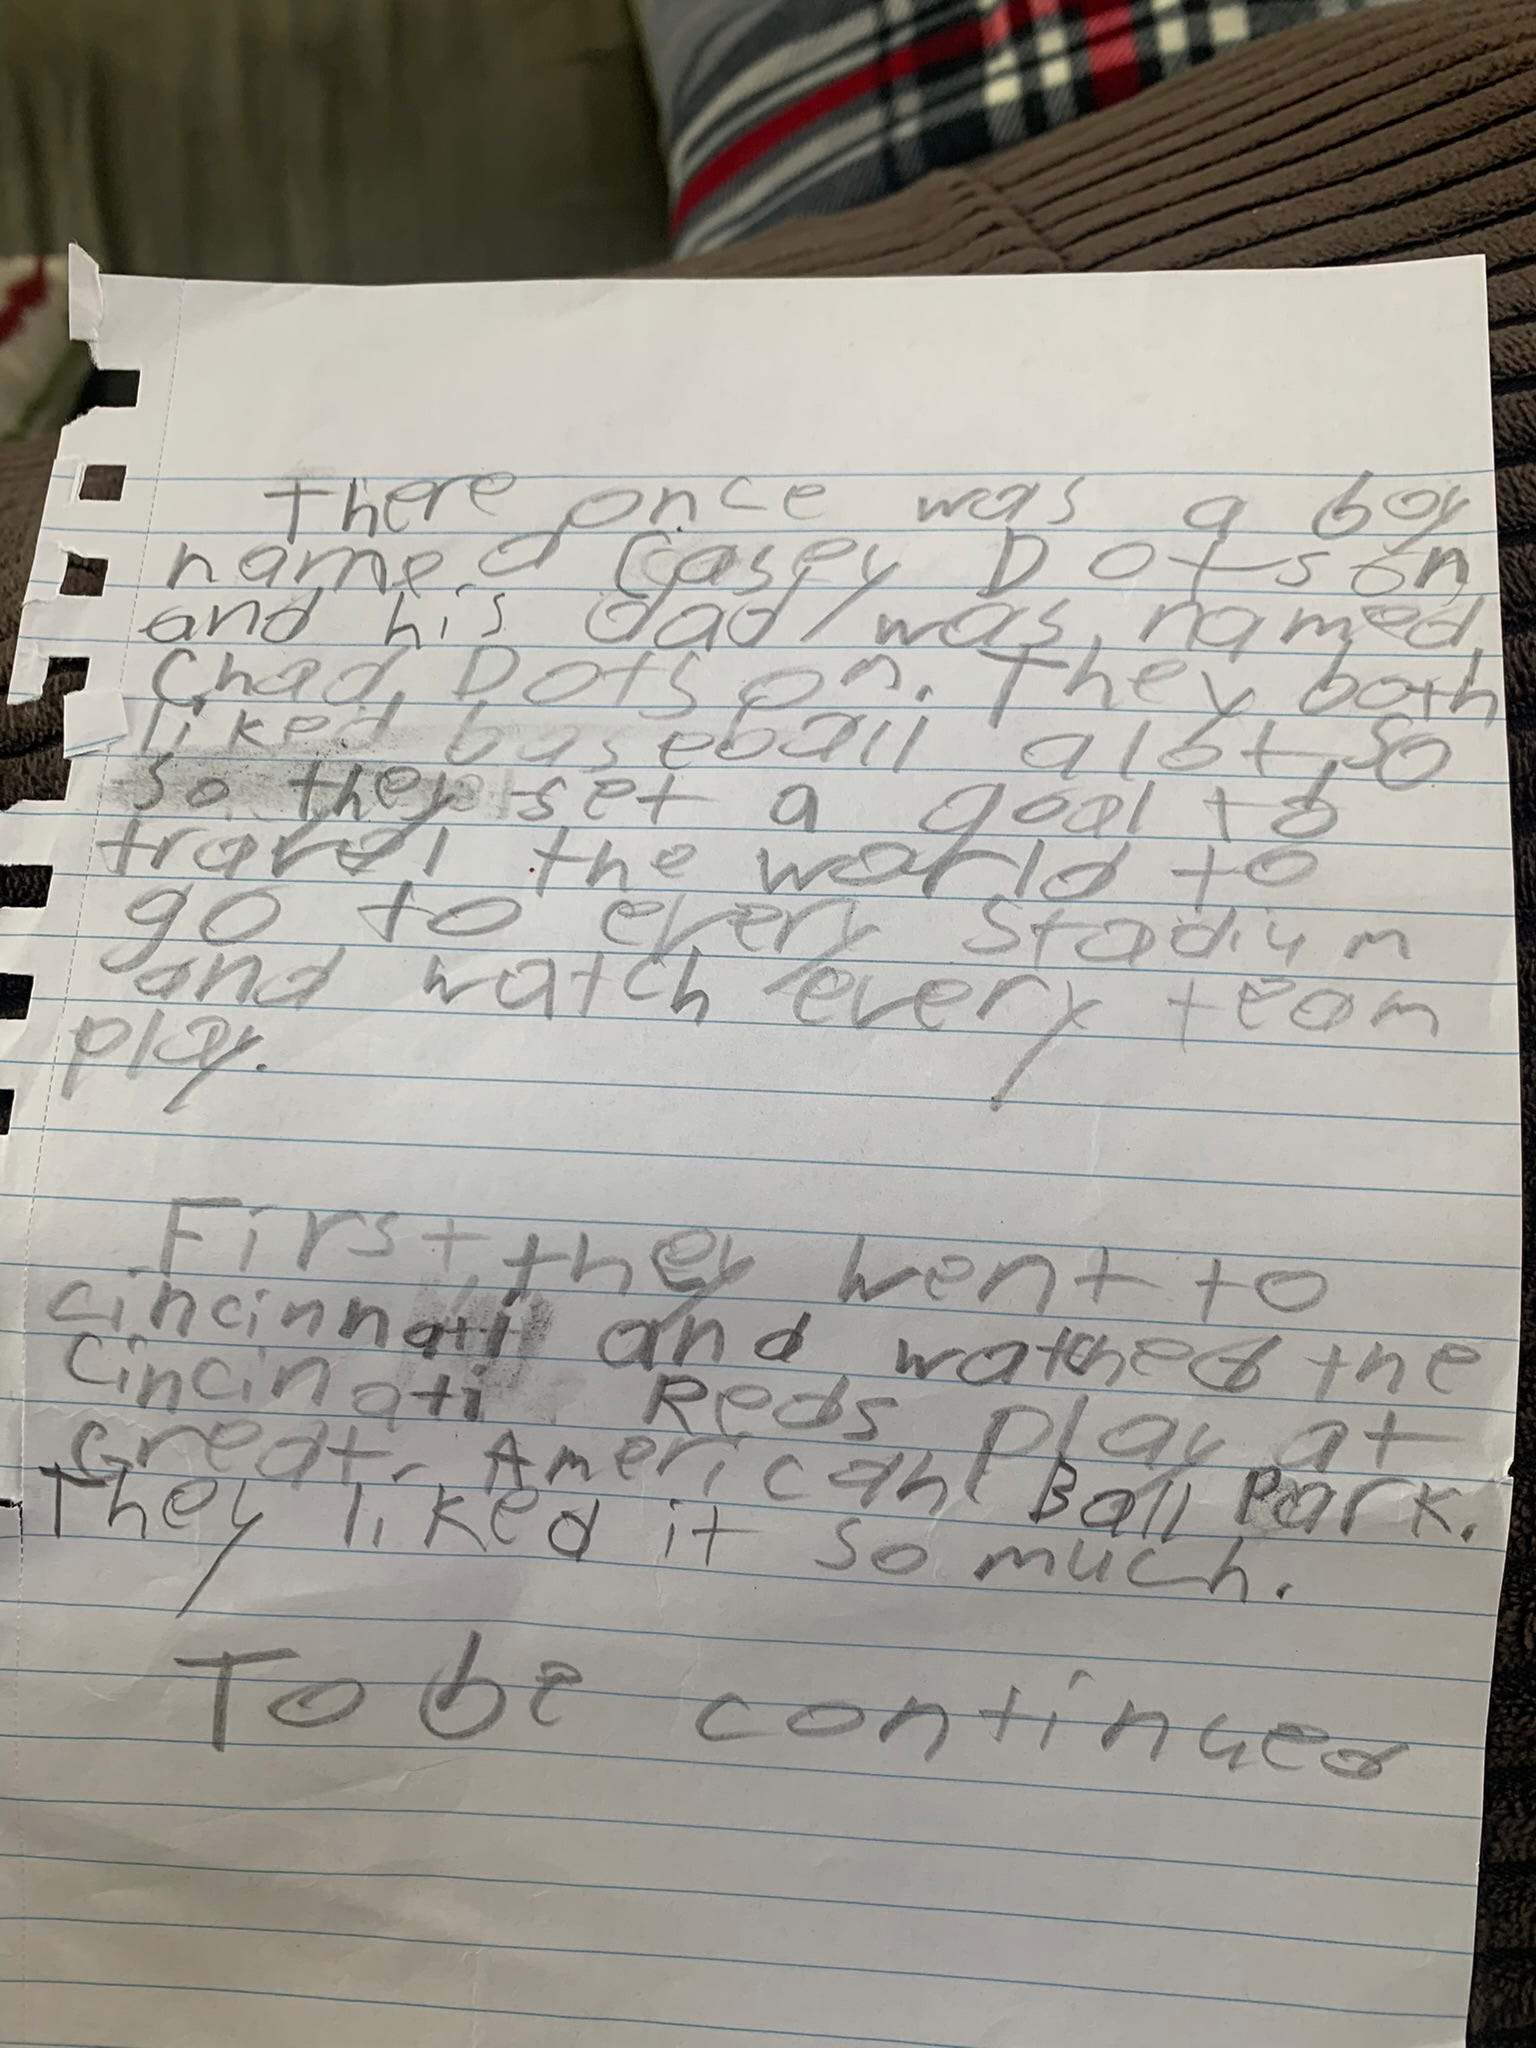 There once was a boy
named Casey Dotson
and his dad was named
Chad Dotson. They both
liked baseball alot so
so they set a goal to
travel the world to
go to every stadium
and watch every team
play.
First, they went to
cincinnati and watched the
Cincinati Reds play at
Great American Ball Park.
They liked it so much.
To be continued